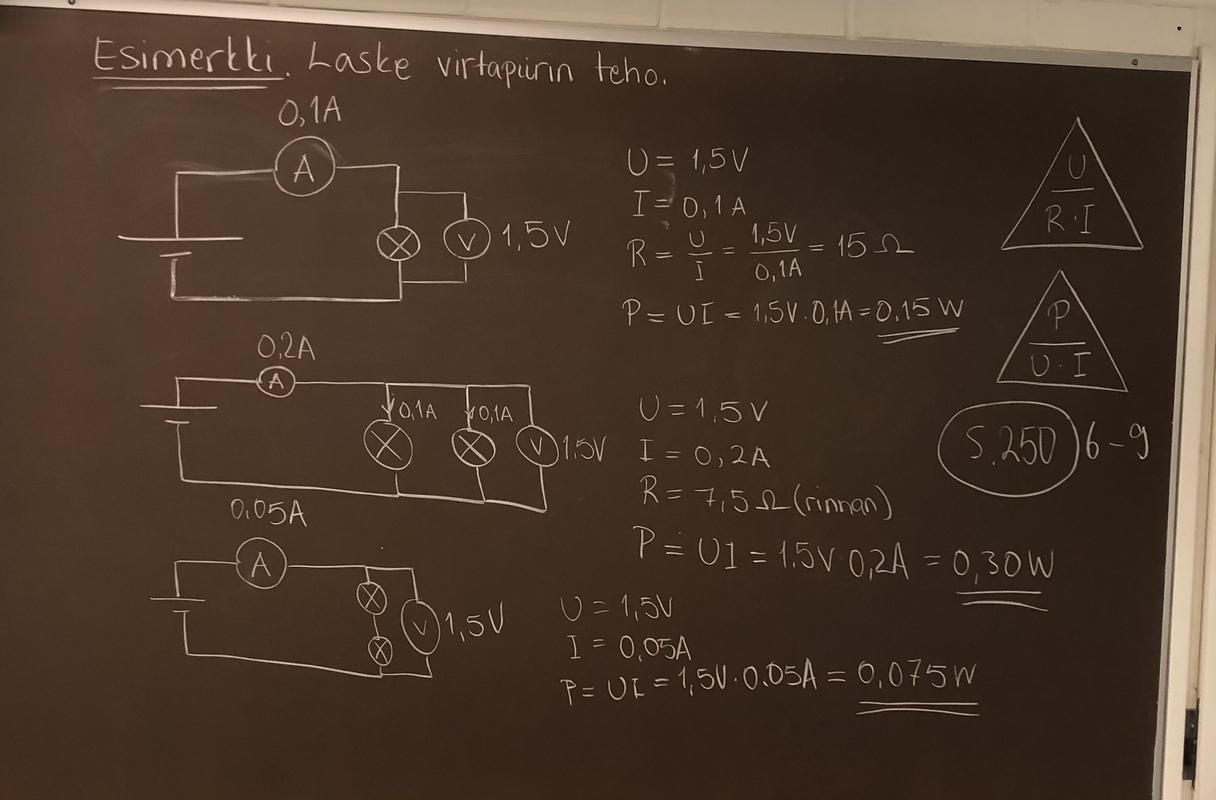 Esimerkki. Laske virtapiirin teho.
0,1A
A
V
1,5V
U = 1,5V
I = 0,1A
R = U/I = 1,5V/0,1A = 15 Ω
P = UI = 1,5V · 0,1A = 0,15 W
U
R · I
P
U · I
0,2A
A
0,1A
0,1A
V
1.5V
U = 1,5V
I = 0,2A
R = 7,5 Ω (rinnan)
P = UI = 1.5V 0,2A = 0,30W
S.250 6-9
0,05A
A
V
1,5V
U = 1,5V
I = 0,05A
P = UI = 1,5V · 0.05A = 0,075W